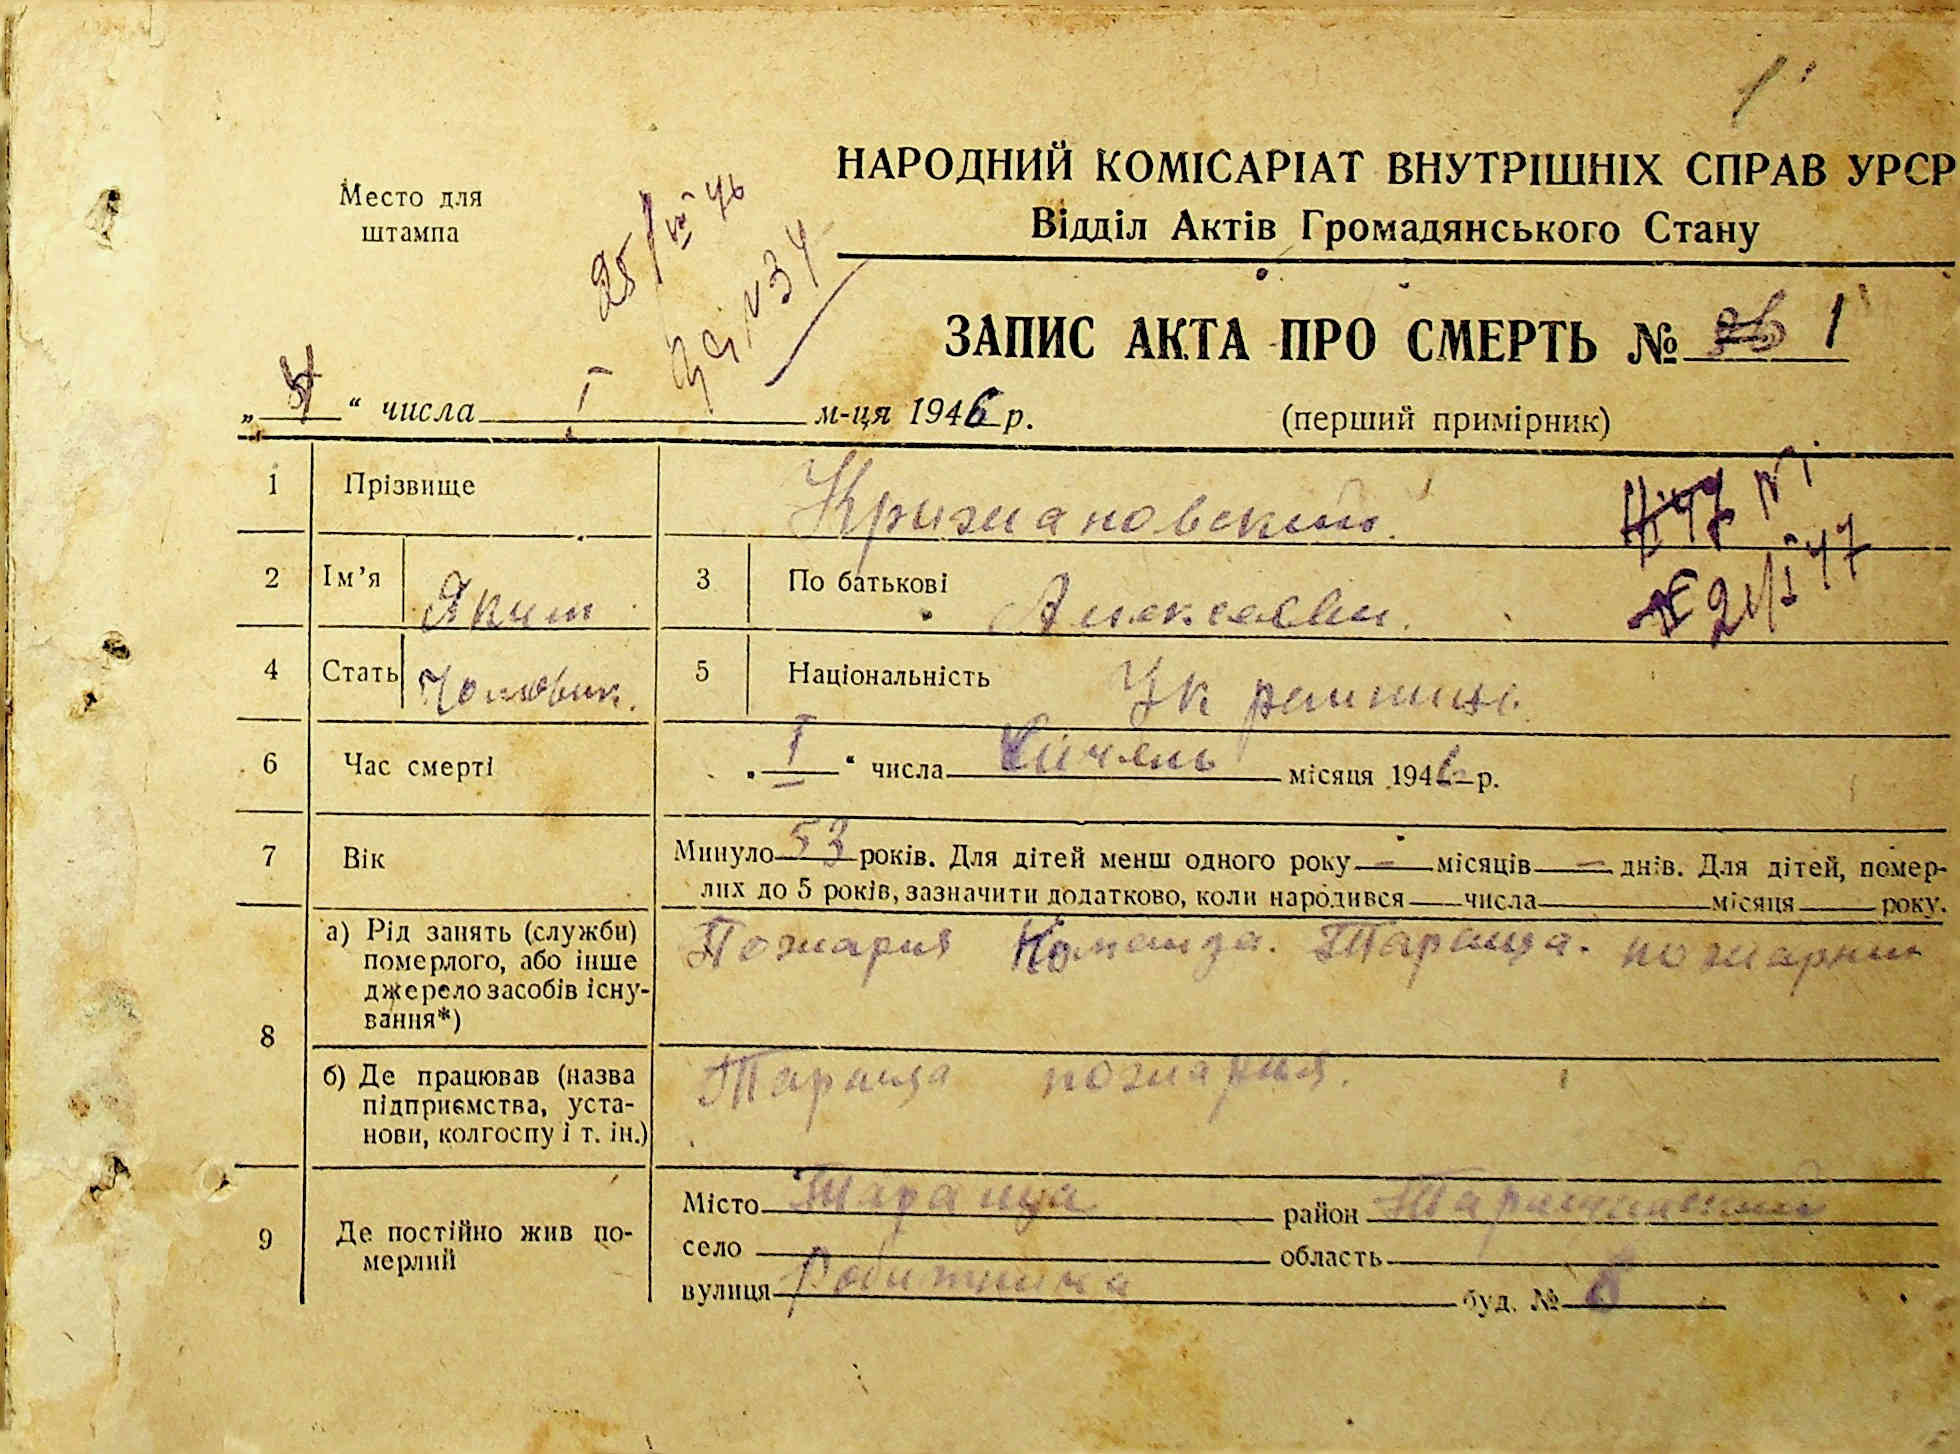 1
НАРОДНИЙ КОМІСАРІАТ ВНУТРІШНІХ СПРАВ УРСР
Відділ Актів Громадянського Стану
Место для
штампа
25/VII 46
№34
ЗАПИС АКТА ПРО СМЕРТЬ № 1
„4“ числа I м-ця 1946 р.
(перший примірник)
1 Прізвище Крижановский
2 Ім’я Яким 3 По батькові Алексеевич
21/I 47
4 Стать Чоловік. 5 Національність Украинец
6 Час смерті „I“ числа Січень місяця 1946 р.
7 Вік Минуло 53 років. Для дітей менш одного року — місяців — днів. Для дітей, помер-
лих до 5 років, зазначити додатково, коли народився числа місяця року.
8 а) Рід занять (служби)
померлого, або інше
джерело засобів існу-
вання*)
Пожарня Команда. Тараща. пожарник
б) Де працював (назва
підприємства, уста-
нови, колгоспу і т. ін.)
Тараща пожарня.
9 Де постійно жив по-
мерлий
Місто Тараща район Таращанский
село область
вулиця Робітнича буд. № 6